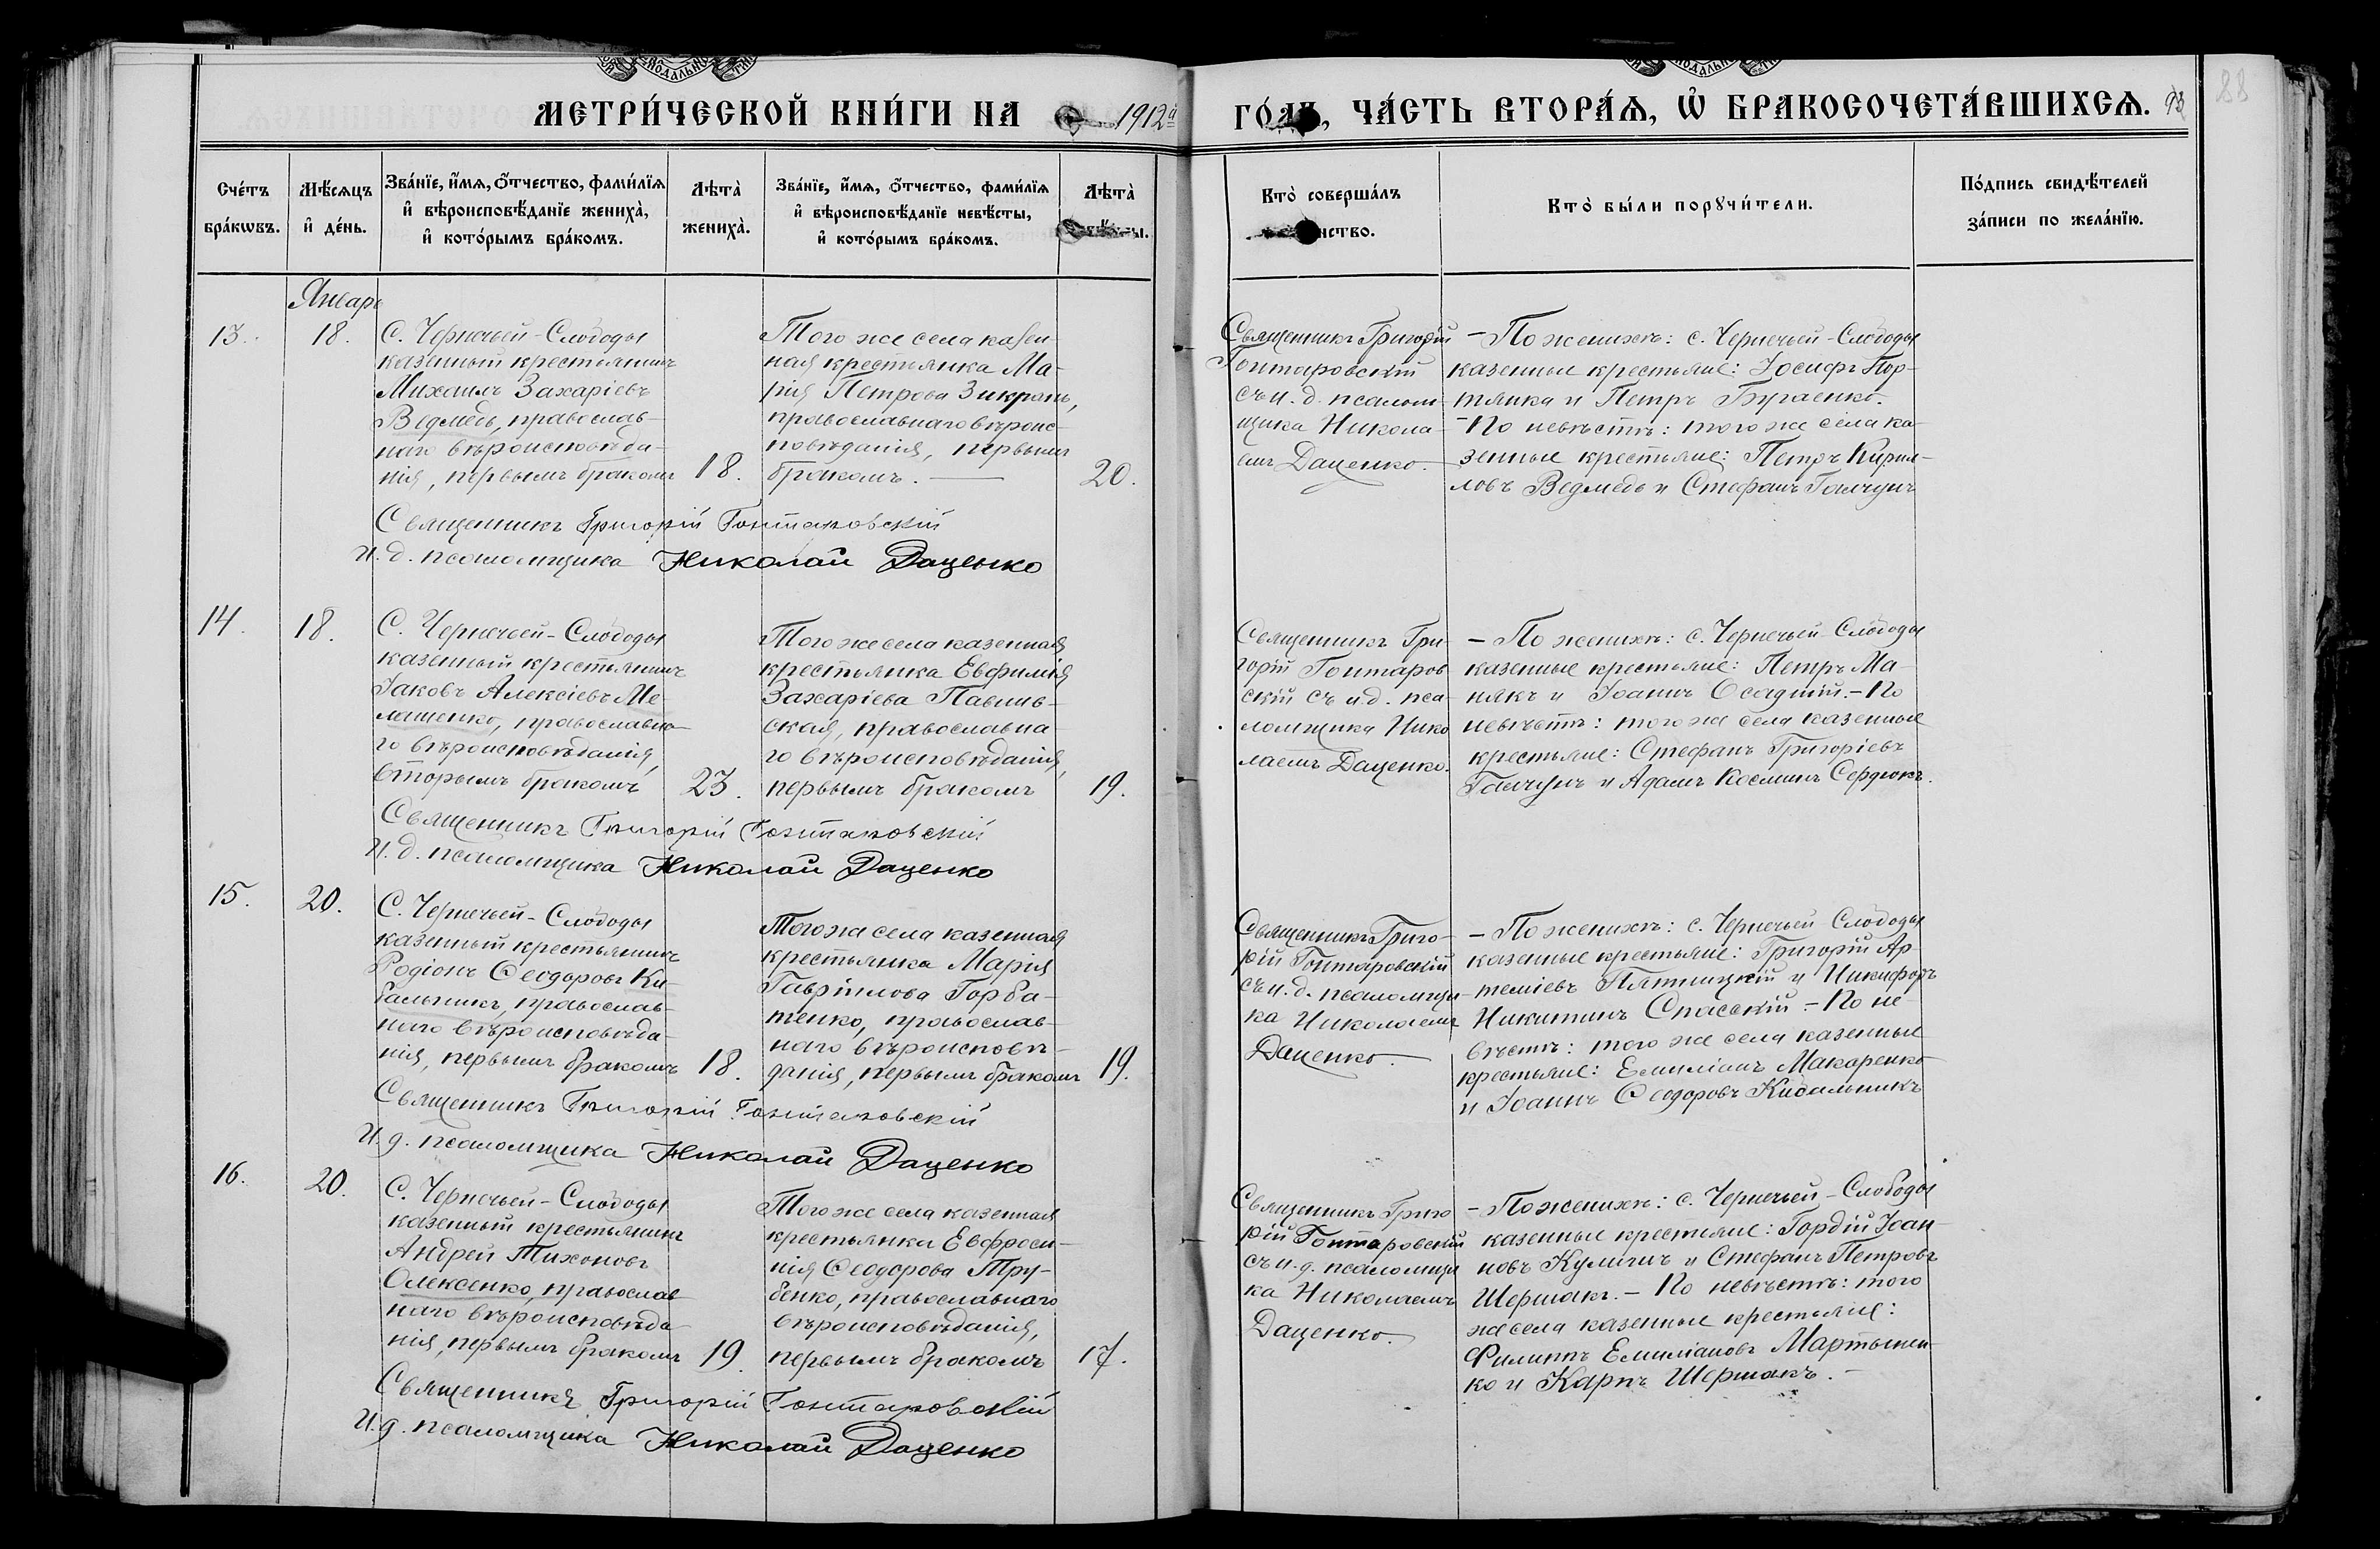 МЕТРИ́ЧЕСКОЙ КНИ́ГИ НА 1912й
ГО́ДЪ, ЧА́СТЬ ВТОРА́Ѧ, Ѽ БРАКОСОЧЕТА́ВШИХСѦ.
88
Сче́тъ
бра́кѡвъ.
Мѣ́сѧцъ
и҆ де́нь.
Зва́нїе, и҆́мѧ, ѻ҆́тчество, фами́лїѧ
и҆ вѣроисповѣ́данїе жениха̀,
и҆ кото́рымъ бра́комъ.
Лѣта̀
жениха̀.
Зва́нїе, и҆́мѧ, ѻ҆́тчество, фами́лїѧ
и҆ вѣроисповѣ́данїе невѣ́сты,
и҆ кото́рымъ бра́комъ.
Лѣта̀
Кто̀ соверша́лъ
Кто̀ бы́ли порꙋчи́тели.
По́дпись свидѣ́телей
за́писи по жела́нїю.
Январь
13.
18.
С. Чернечьей-Слободы
казенный крестьянинъ
Михаилъ Захаріевъ
Ведмедь, православ-
наго вѣроисповѣда-
нія, первымъ бракомъ
18.
Того же села казен-
ная крестьянка Ма-
рія Петрова Зикрань,
православнаго вѣроис-
повѣданія, первымъ
бракомъ.
20.
Священникъ Григорій
Гонтаровскій
съ и. д. псалом-
щика Никола-
емъ Даценко.
- По женихѣ: с. Чернечьей-Слободы
казенные крестьяне: Іосифъ Пор-
тянка и Петръ Бугаенко.
- По невѣстѣ: того же села ка-
зенные крестьяне: Петръ Кирил-
ловъ Ведмедь и Стефанъ Галчунъ
Священникъ Григорій Гонтаровскій
И. д. псаломщика Николай Даценко
14.
18.
С. Чернечьей-Слободы
казенный крестьянинъ
Іаковъ Алексіевъ Ме-
лашенко, православна-
го вѣроисповѣданія,
вторымъ бракомъ
23.
Того же села казенная
крестьянка Евфимія
Захаріева Павлив-
ская, православна-
го вѣроисповѣданія,
первымъ бракомъ
19.
Священникъ Гри-
горій Гонтаров
скій съ и.д. пса-
ломщика Нико
лаемъ Даценко.
- По женихѣ: с. Чернечьей-Слободы
казенные крестьяне: Петръ Ма-
някъ и Іоаннъ Осадчій. - По
невѣстѣ: того же села казенные
крестьяне: Стефанъ Григоріевъ
Галчунъ и Адамъ Косминъ Сердюкъ.
Священникъ Григорій Гонтаровскій
И. д. псаломщика Николай Даценко
15.
20.
С. Чернечьей-Слободы
казенный крестьянинъ
Родіонъ Ѳеодоровъ Ки-
бальникъ, православ-
наго вѣроисповѣда-
нія, первымъ бракомъ
18.
Того же села казенная
крестьянка Марія
Гавріилова Горба-
тенко, православ-
наго вѣроисповѣ-
данія, первымъ бракомъ
19.
Священникъ Григо-
рій Гонтаровскій
съ и. д. псаломщи-
ка Николаемъ
Даценко.
- По женихѣ: с. Чернечьей Слободы
казенные крестьяне: Григорій Ар-
теміевъ Пятницкій и Никифоръ
Никитинъ Спаскій. - По не-
вѣстѣ: того же села казенные
крестьяне: Емиліанъ Макаренко
и Іоаннъ Ѳеодоровъ Кибальникъ
Священникъ Григорій Гонтаровскій
И. д. псаломщика Николай Даценко
16.
20.
С. Чернечьей-Слободы
казенный крестьянинъ
Андрей Тихоновъ
Олексенко, православ
наго вѣроисповѣда
нія, первымъ бракомъ
19.
Того же села казенная
крестьянка Евфроси-
нія Ѳеодорова Тру-
бенко, православнаго
вѣроисповѣданія,
первымъ бракомъ
17.
Священникъ Григо
рій Гонтаровскій
съ и. д. псаломщи
ка Николаемъ
Даценко.
- По женихѣ: с. Чернечьей-Слободы
казенные крестьяне: Гордій Іоан-
новъ Куличъ и Стефанъ Петровъ
Шершакъ. - По невѣстѣ: того
же села казенные крестьяне:
Филиппъ Емиліановъ Мартынен-
ко и Карпъ Шершакъ. -
Священникъ Григорій Гонтаровскій
И. д. псаломщика Николай Даценко